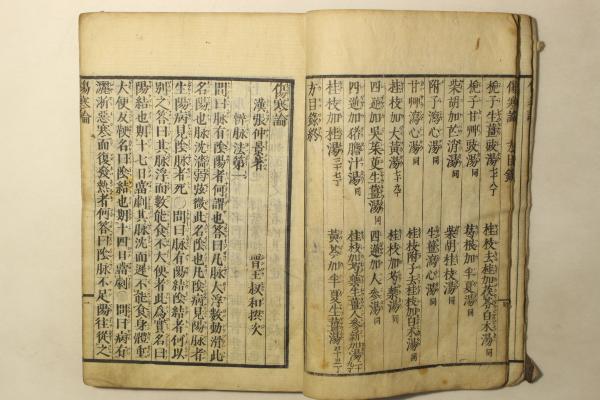 傷寒論 方目錄
梔子生薑豉湯二十八丁 桂枝去桂加茯苓白朮湯同
梔子甘草豉湯同 葛根加半夏湯同
柴胡加芒消湯同 柴胡桂枝湯同
附子瀉心湯同 生薑瀉心湯同
甘草瀉心湯同 桂枝附子去桂枝加白朮湯同
桂枝加大黃湯 桂枝加芍藥湯同
四逆加吳茱更生薑湯同 四逆加人參湯同
四逆加猪膽汁湯同 桂枝加芍藥生薑人參新加湯
桂枝加桂湯 黃芩加半夏生薑湯
方目錄終
傷寒論
漢張仲景著 晋王叔和撰次
辨脉法第一
問曰脉有陰陽者何謂也答曰凡脉大浮數動滑此
名陽也脉沈濇弱弦微此名陰也凡陰病見陽脉者
生陽病見陰脉者死○問曰脉有陽結陰結者何以
別之答曰其脉浮而數能食不大便者此爲實名曰
陽結也期十七日當劇其脉沈而遲不能食身體重
大便反鞕名曰陰結也期十四日當劇○問曰病有
灑淅惡寒而復發熱者何答曰陰脉不足陽往從之
傷寒論